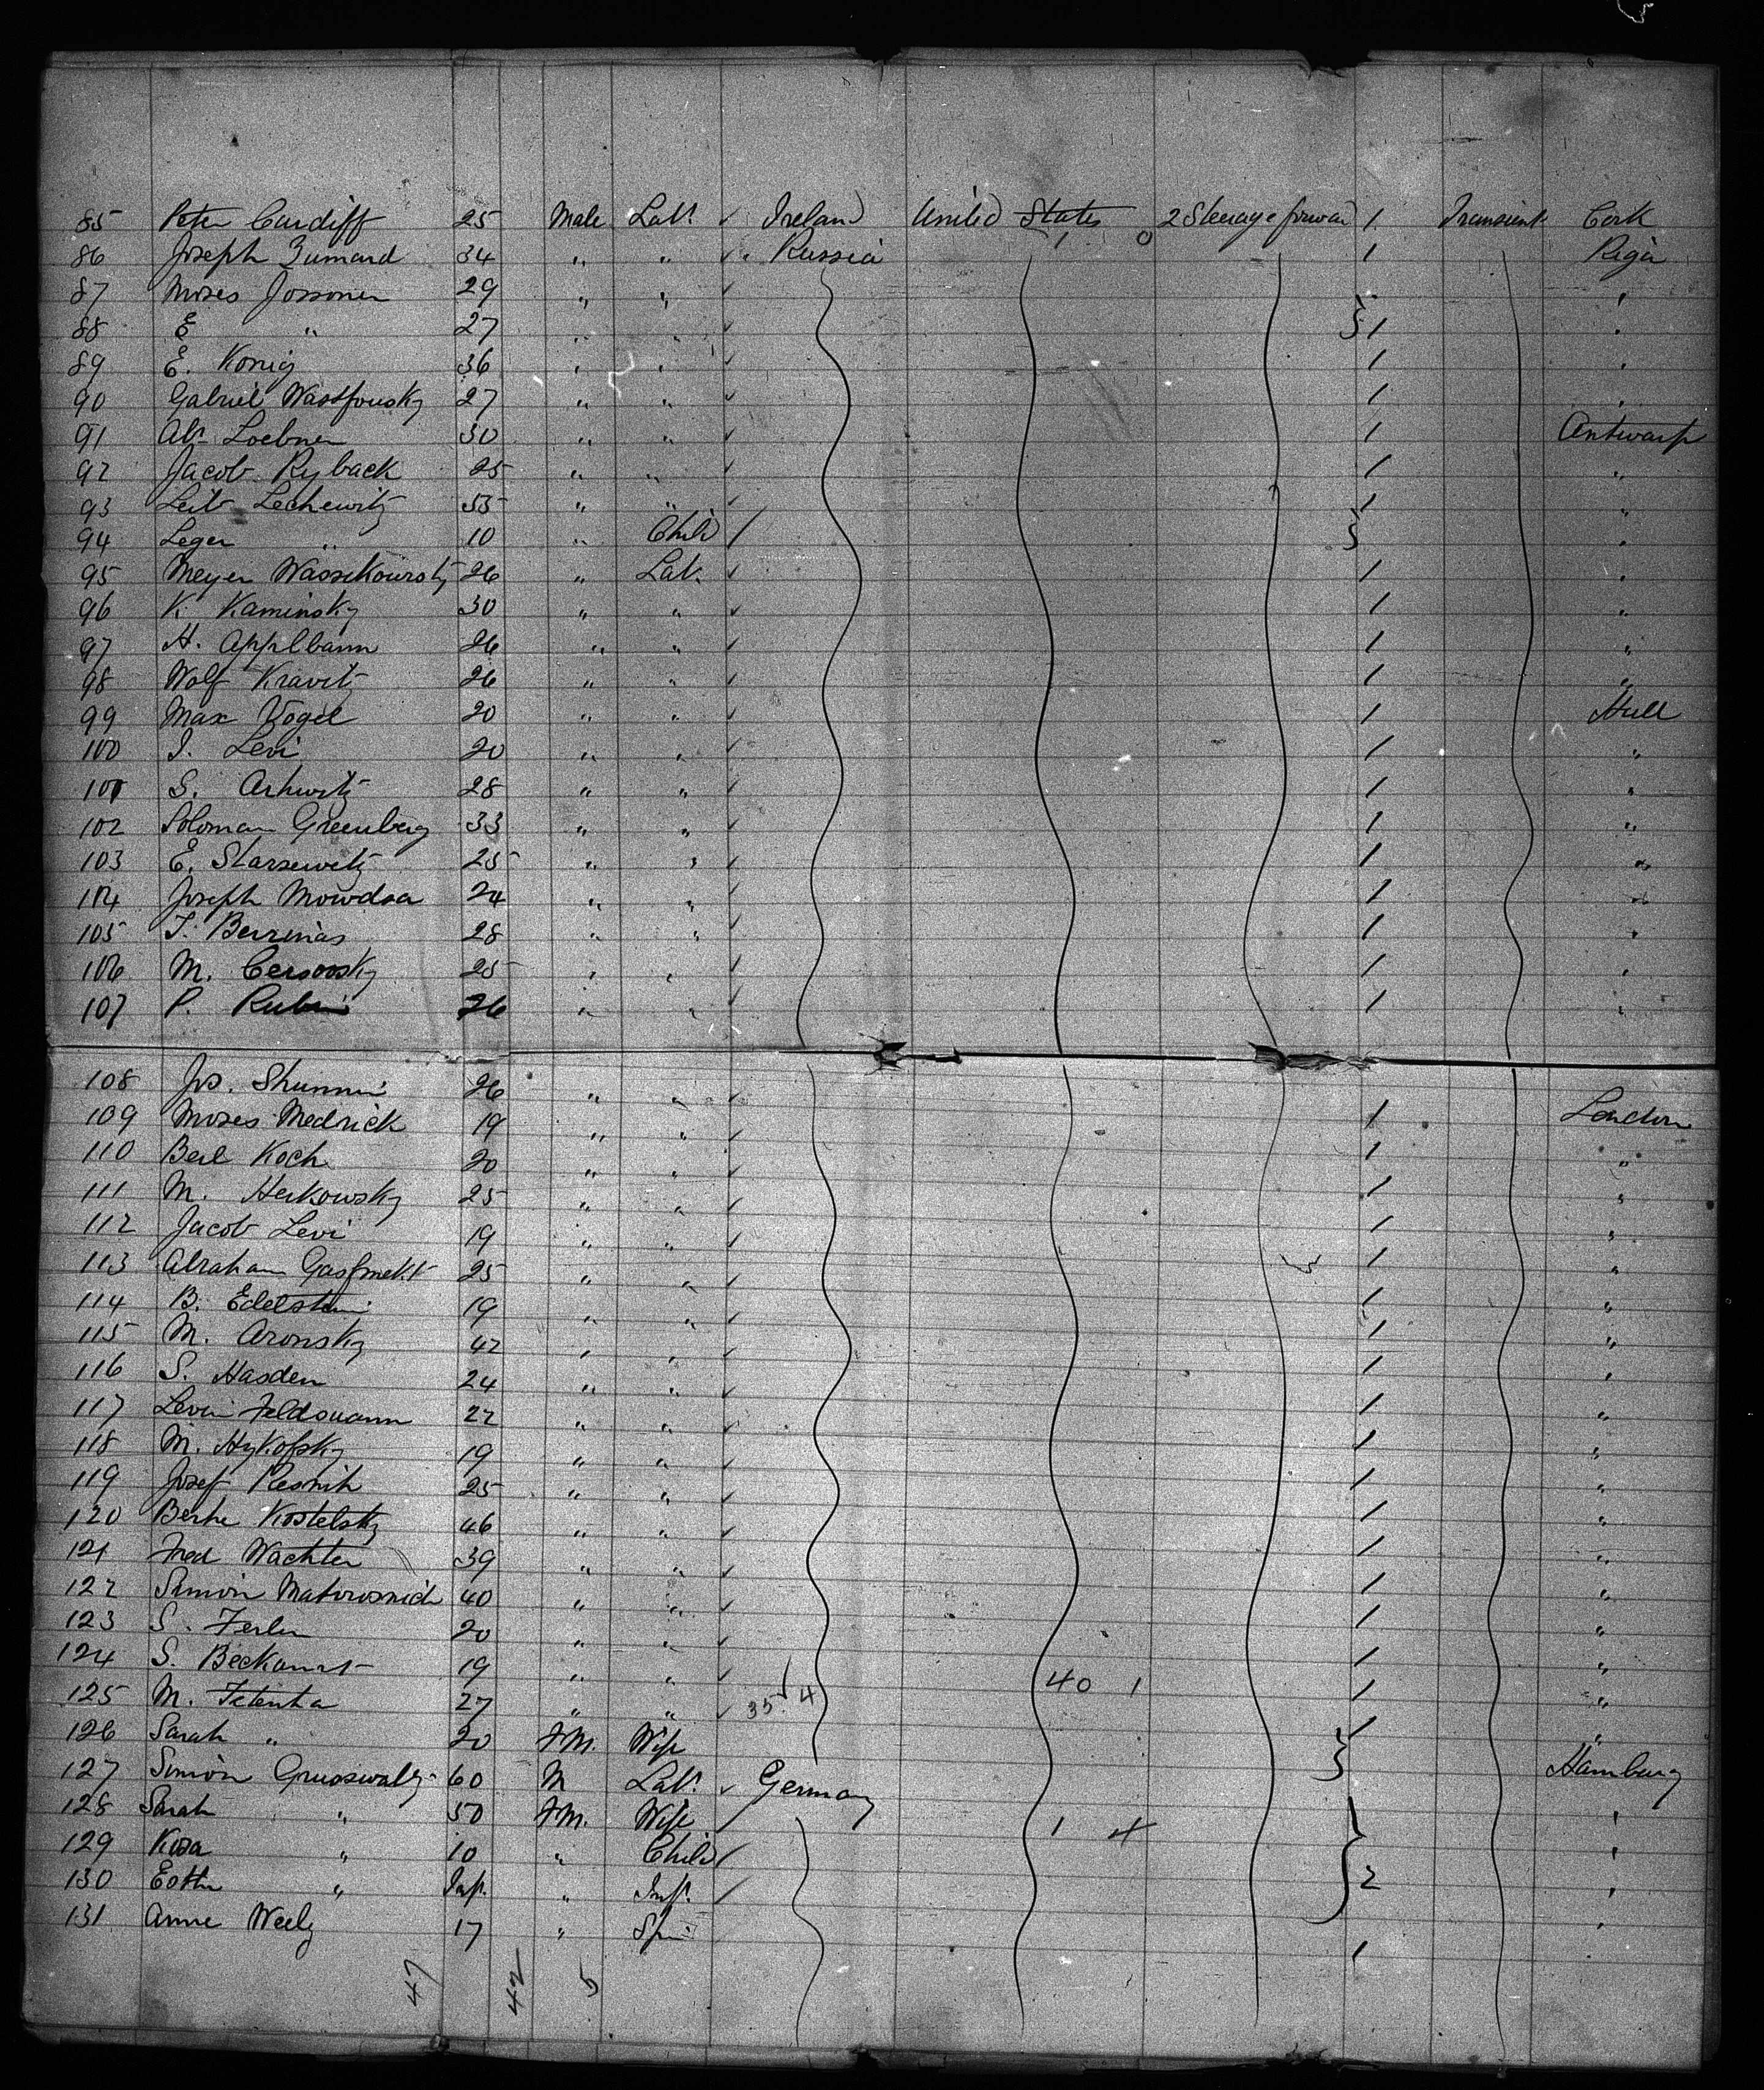 85 Peter Cardiff 25 Male Labr. ✓ Ireland United States 2 Steerage forward 1 Transient Cork
86 Joseph 34 " " ✓ " Russia 1 0 1 Riga
87 Moses Jossonen 29 " " ✓ "
88 E " 27 " " ✓ 1 "
89 E. Konig 36 " " ✓ 1 "
90 Gabriel 27 " " ✓ 1 "
91 Ab. Loebner 30 " " ✓ 1 Antwarp
92 Jacob Ryback 25 " " ✓ 1 "
93 Leib Lechewitz 55 " " ✓ 1 "
94 Leger " 10 " Child / "
95 Meyer 26 " Lab. ✓ 1 "
96 K. Kaminsky 30 " " ✓ 1 "
97 H. Applbaum 26 " " ✓ 1 "
98 Wolf Kravitz 26 " " ✓ 1 "
99 Max Vogel 20 " " ✓ 1 Hull
100 I. Levi 20 " " ✓ 1 "
101 S. Arhwitz 28 " " ✓ 1 "
102 Soloman Greenberg 33 " " ✓ 1 "
103 E. Starsewitz 25 " " ✓ 1 "
104 Joseph Mowdsa 24 " " ✓ 1 "
105 Berzinas 28 " " ✓ 1 "
106 M. Cersovsky 25 " " ✓ 1 "
107 P. Rubin 26 " " ✓ 1 "
108 Jos. 26 " " ✓
109 Moses Medrick 19 " " ✓ 1 London
110 Berl Koch 20 " " ✓ 1 "
111 M. Herkowsky 25 " " ✓ 1 "
112 Jacob Levi 19 " " ✓ 1 "
113 Abraham 25 " " ✓ 1 "
114 B. Edelstein 19 " " ✓ 1 "
115 M. Aronsky 42 " " ✓ 1 "
116 S. Hasden 24 " " ✓ 1 "
117 Levin Feldsmann 22 " " ✓ 1 "
118 M. Hykofsky 19 " " ✓ 1 "
119 Josef Resnik 25 " " ✓ 1 "
120 Kostelsky 46 " " ✓ 1 "
121 Fred Wachter 39 " " ✓ 1 "
122 Simon 40 " " ✓ 1 "
123 S. Ferler 20 " " ✓ 1 "
124 S. 19 " " ✓ 40 1 1 "
125 M. 27 " " ✓ 35 4 1 "
126 Sarah " 20 FM. Wife 1 "
127 Simon 60 M Labr. ✓ Germany Hamburg
128 Sarah " 50 FM. Wife / 1 4 "
129 Rosa " 10 " Child / "
130 Esther " Inf. " Inf. / 2 "
131 Anne Weely 17 " Spin "
1
47 42 5